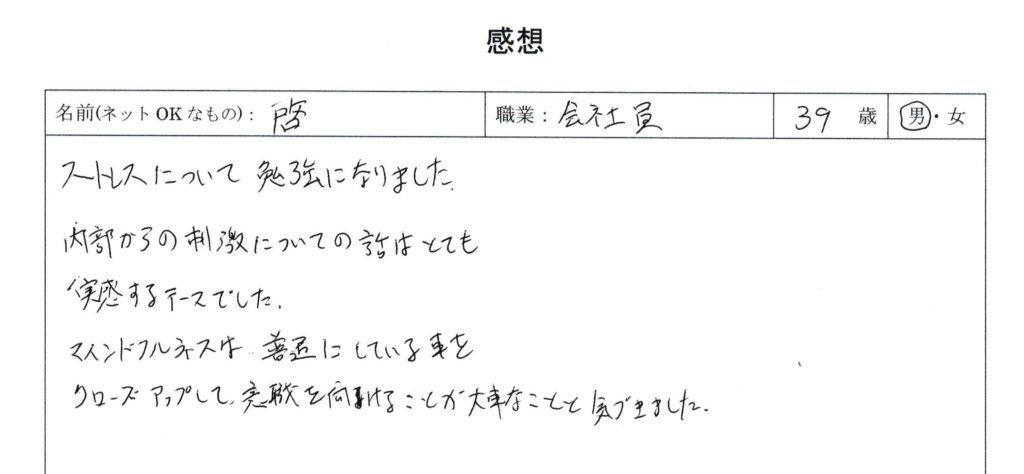 感想
名前(ネット OK なもの)： 啓 職業： 会社員 39 歳 男・女
ストレスについて 勉強になりました。
内部からの刺激についての話はとても
実感するテーマでした。
マインドフルネスは 普通にしている事を
クローズアップして、意識を向けることが大事なことと気づきました。